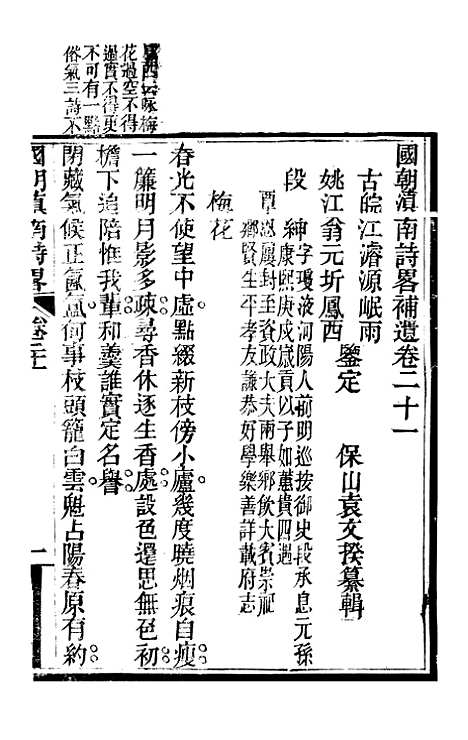 國朝滇南詩畧補遺卷二十一
古皖江濬源岷雨
姚江翁元圻鳳西 鑒定 保山袁文揆纂輯
段 紳字瓊液河陽人前明巡按御史段承息元孫
康熙庚戌歲貢以子如蕙貴四遇
覃恩屢封至資政大夫兩舉鄉飲大賓崇祀
鄉賢生平孝友謙恭好學樂善詳載府志
梅花
春光不使望中虛點綴新枝傍小廬幾度曉烟痕自瘦
一簾明月影多疎尋香休逐生香處設色還思無色初
檐下追陪惟我輩和羹誰實定名譽
閉藏氣候正氤氳何事枝頭籠白雲魁占陽春原有約
鳳西云咏梅
花過空不得
過實不得更
不可有一點
俗氣三詩不
國朝滇南詩畧
卷二十一
一